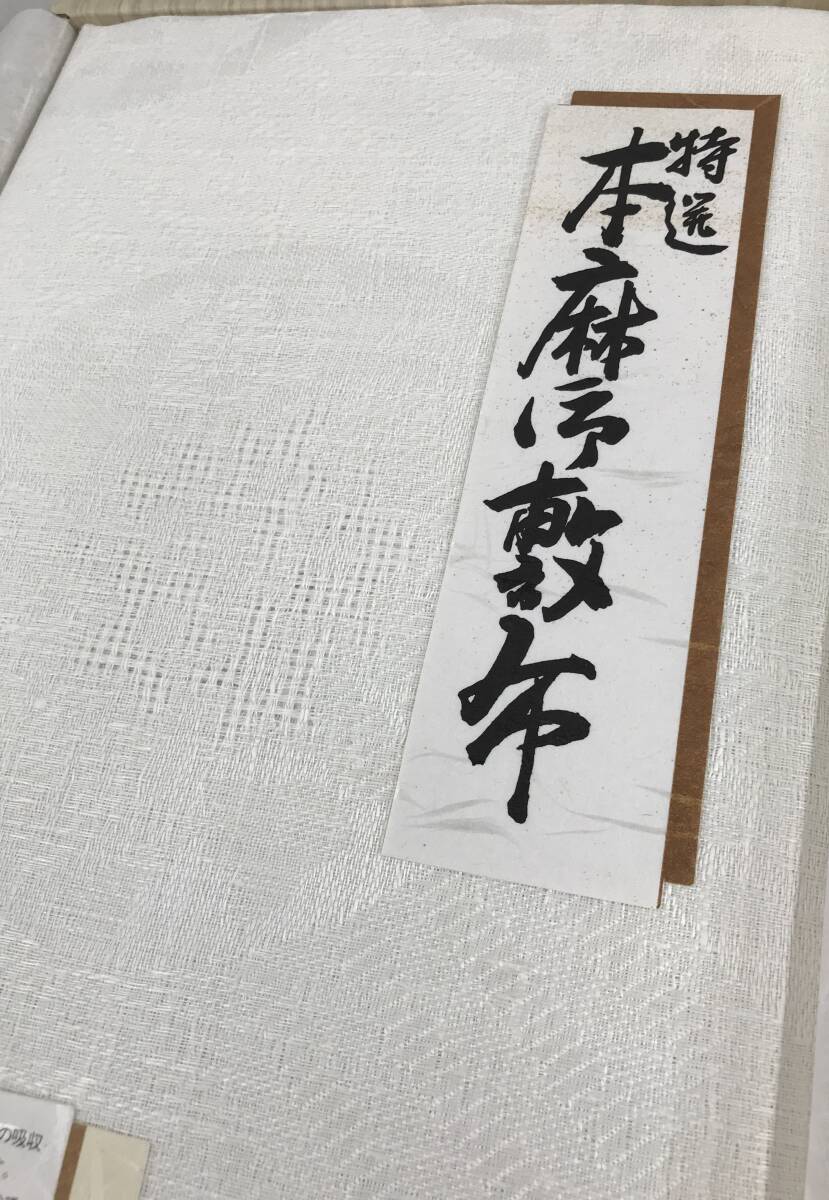 特選
本麻御敷布
の吸収
。